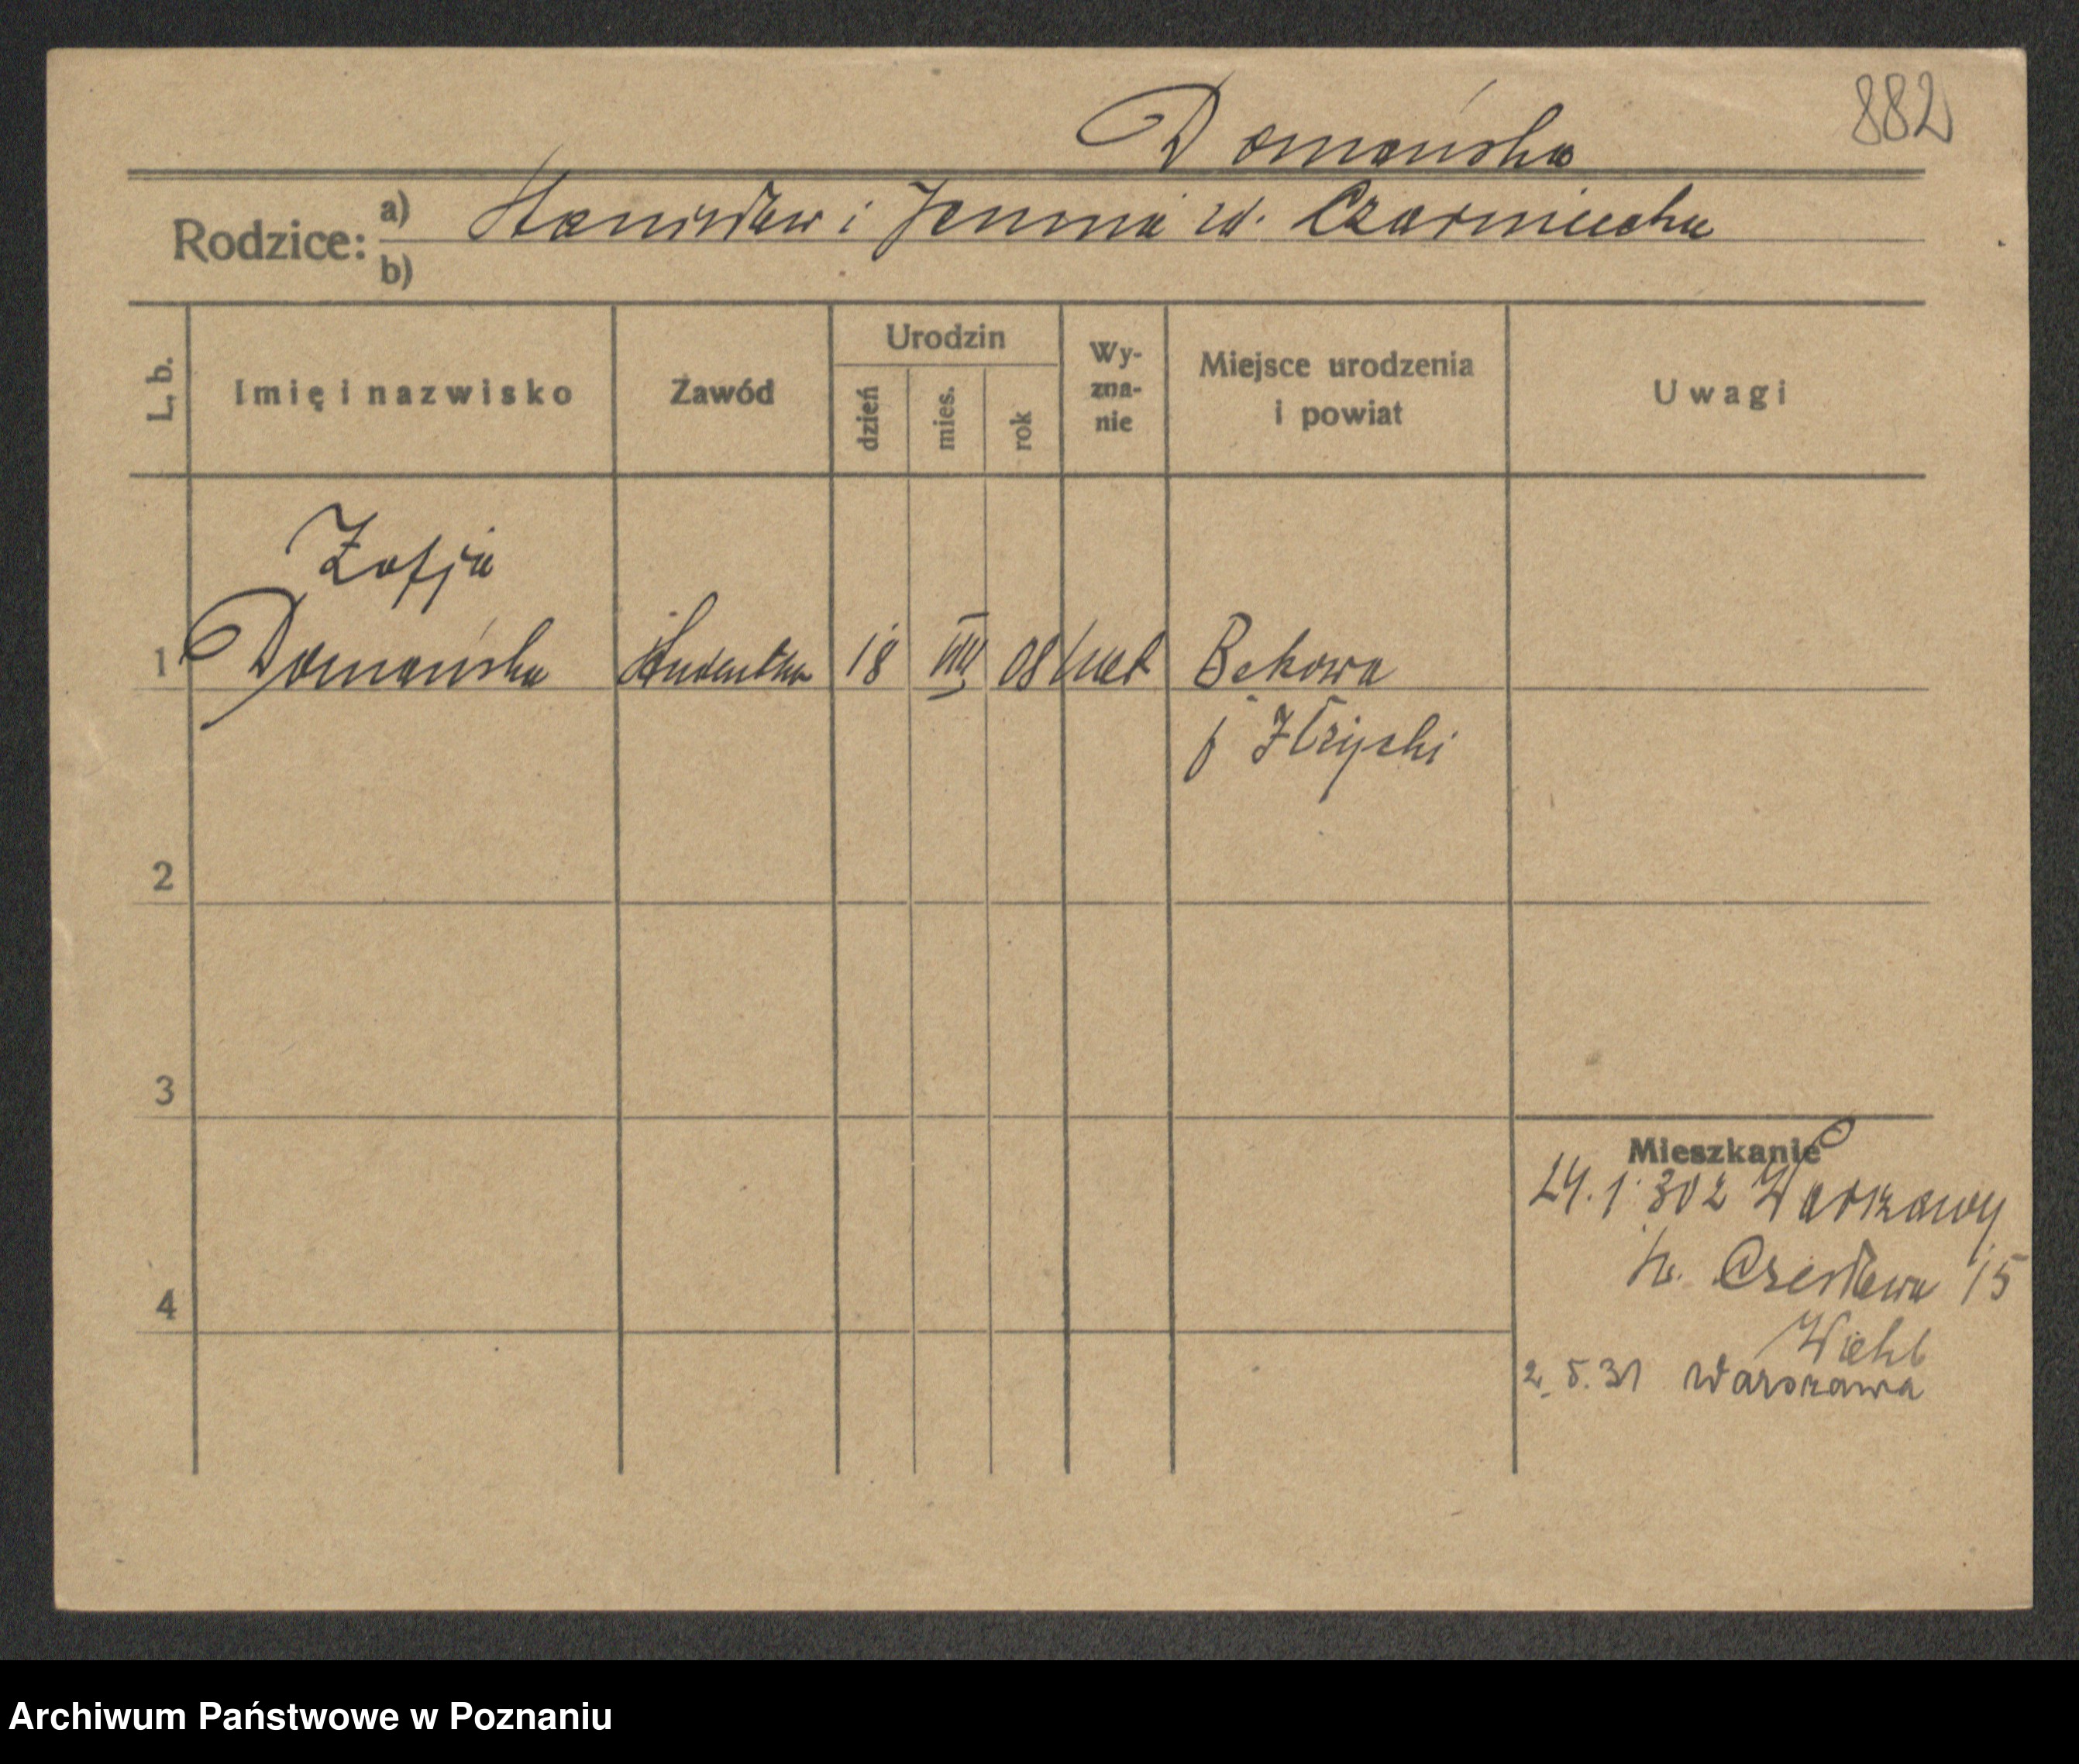 882
Domańska
Rodzice: a) Stanisław i Janina zd. Czarniecka
b)
L. b. Imię i nazwisko Zawód Urodzin dzień mies. rok Wyznanie Miejsce urodzenia i powiat Uwagi
Zofja
1 Domańska studentka 18 VIII 08 kat Bekowa
p Iłżycki
2
3
Mieszkanie
24.1 30 z Warszawy
św. Czesława 15
4
2.5.31 Warszawa
Archiwum Państwowe w Poznaniu